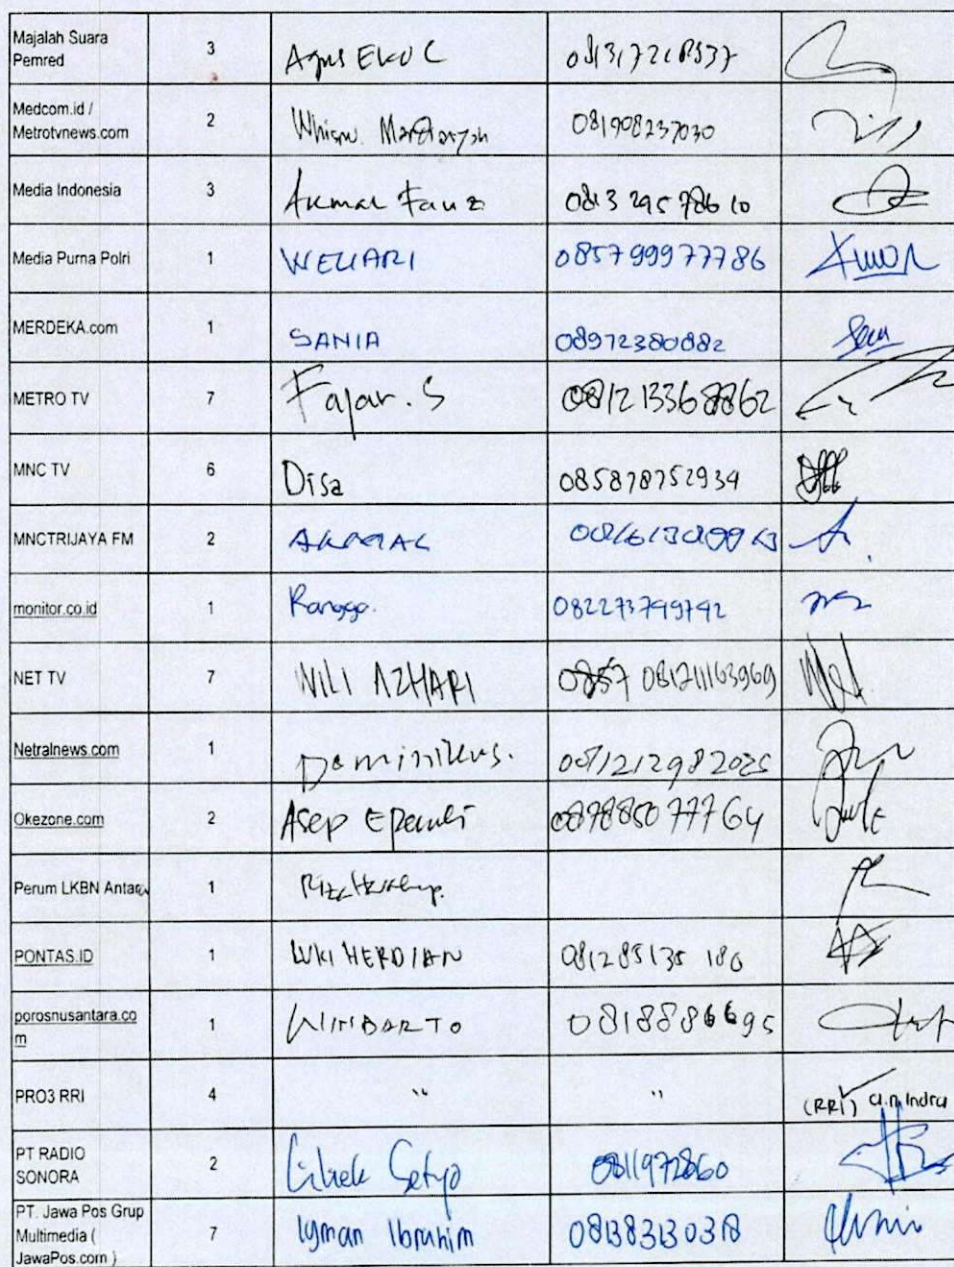 Majalah Suara
Pemred
3
Agus Eko C
Medcom.id /
Metrotvnews.com
2
081908237030
Media Indonesia
3
Akmal Fauz
0813 295 78610
Media Purna Polri
1
WELIARI
085799977786
MERDEKA.com
1
SANIA
08972380882
METRO TV
7
Fajar. S
081213368862
MNC TV
6
Disa
085878752934
MNCTRIJAYA FM
2
AKMAL
monitor.co.id
1
Rangga.
NET TV
7
WILI AZHARI
081211163969
Netralnews.com
1
Dominikus.
081212982025
Okezone.com
2
Asep
087880777764
Perum LKBN Antara
1
PONTAS.ID
1
LUKI HERDIAN
081285135 180
porosnusantara.co
m
1
WINBARTO
0818886695
PRO3 RRI
4
"
"
(RRI) a.n Indra
PT RADIO
SONORA
2
Setyo
0811972860
PT. Jawa Pos Grup
Multimedia (
JawaPos.com )
7
Igman Ibrahim
081383130318